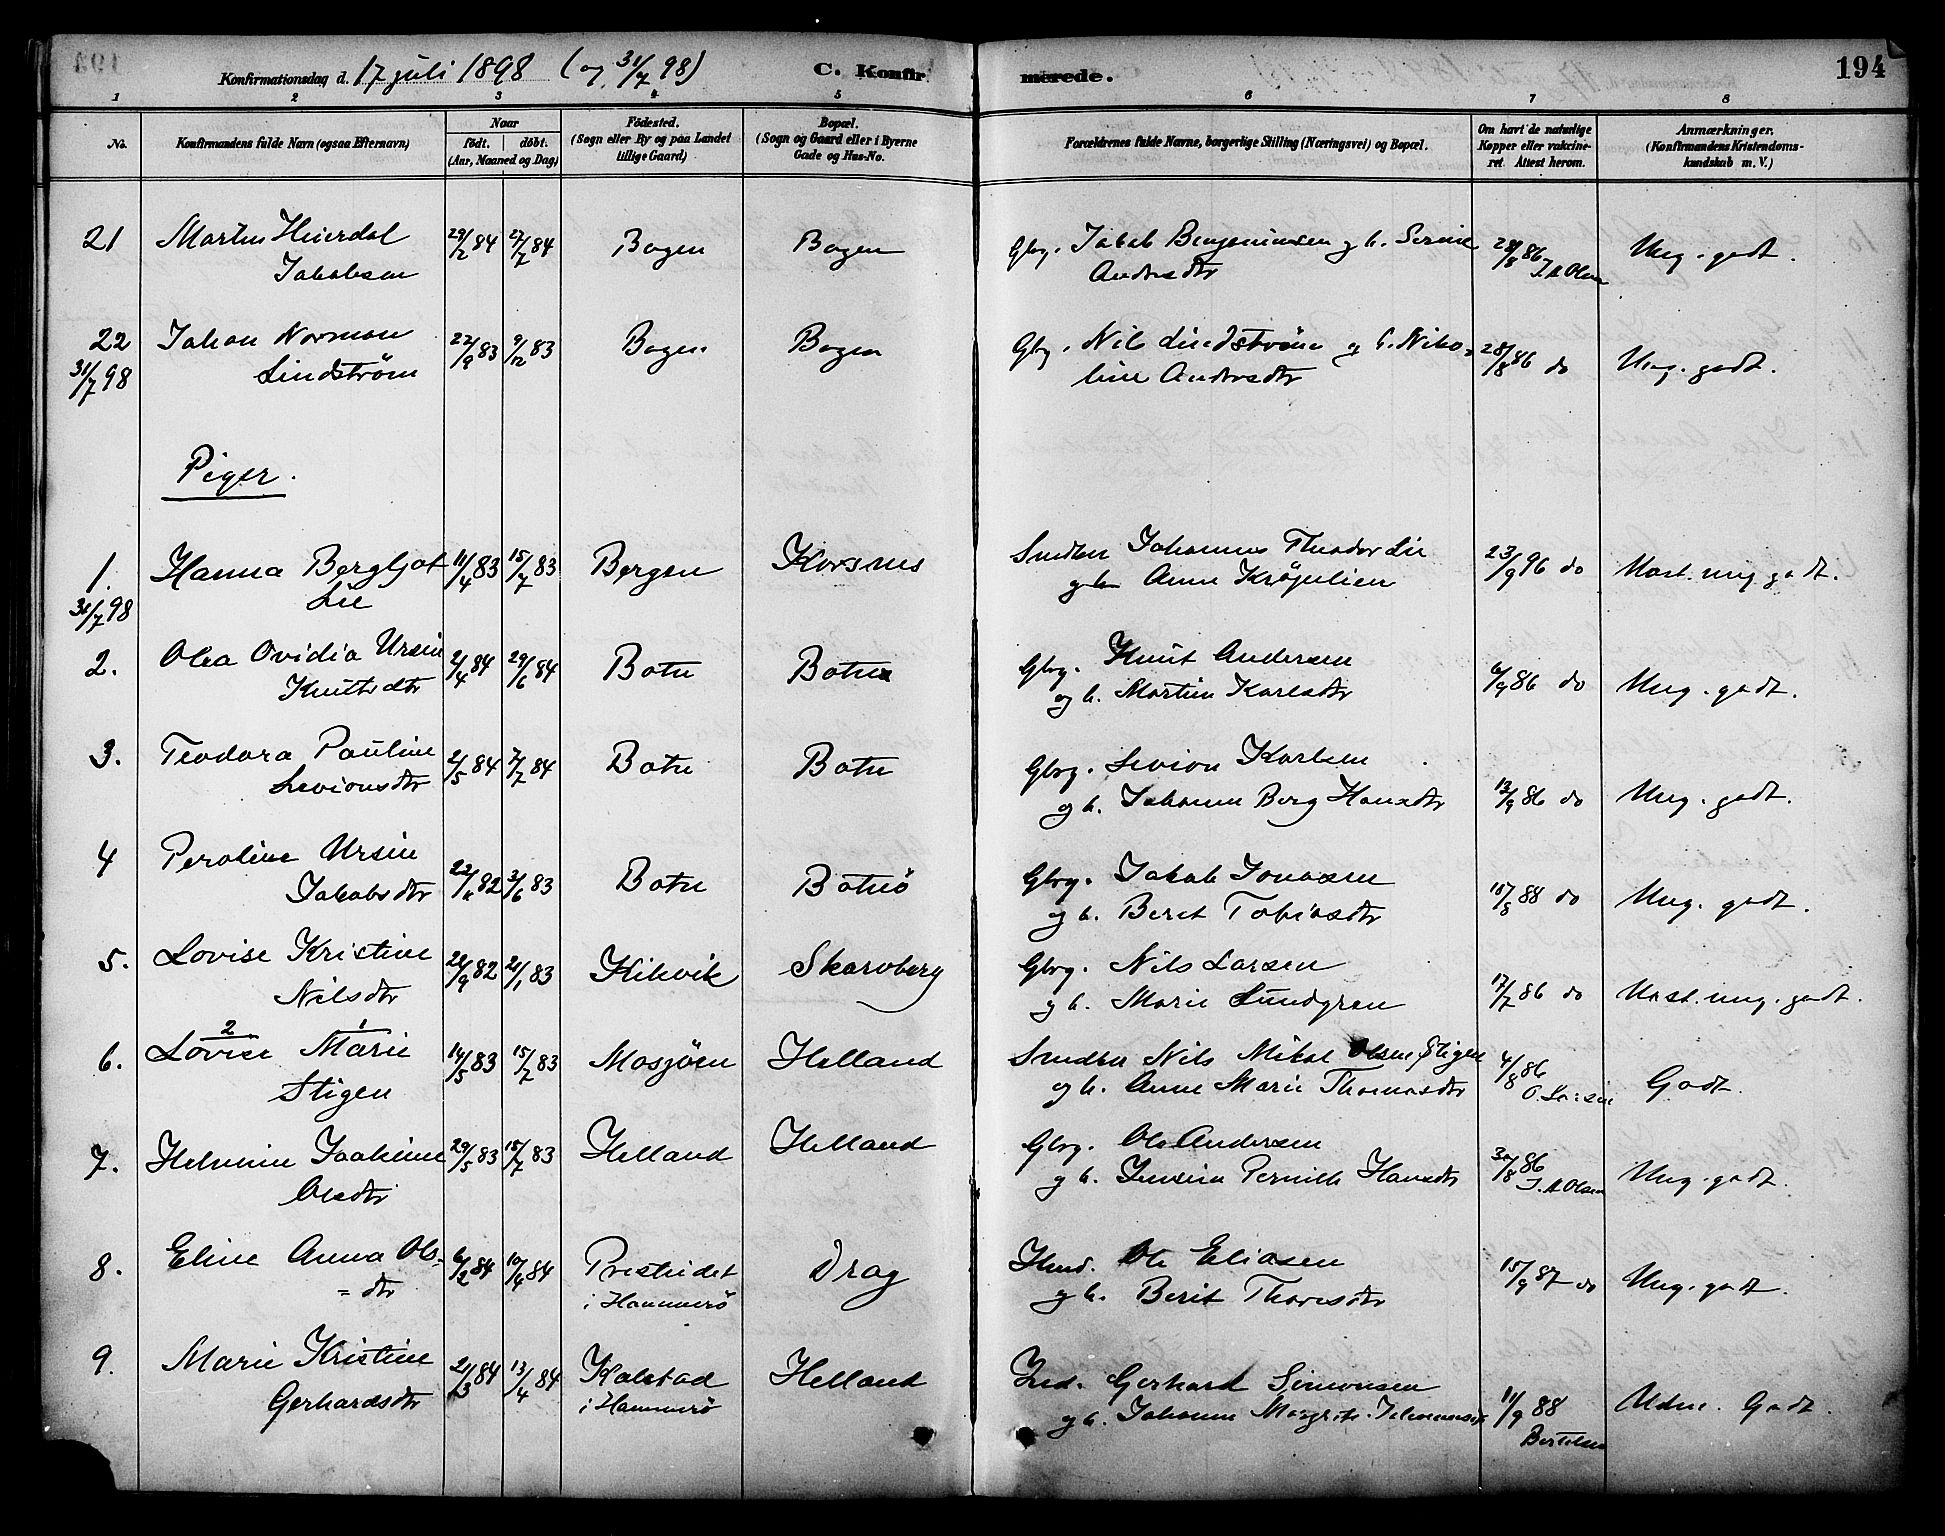 Konfirmationsdag d. 17 juli 1898 (og 31/7 98) C. Konfirmerede. 194
1 2 3 4 5 6 7 8
No.
Konfirmandens fulde Navn (ogsaa Efternavn)
Naar
født. døbt.
(Aar, Maaned og Dag)
Fødested.
(Sogn eller By og paa Landet
tillige Gaard)
Bopæl.
(Sogn og Gaard eller i Byerne
Gade og Hus-No.
Forældrenes fulde Navne, borgerlige Stilling (Næringsvei) og Bopæl.
Om havt de naturlige
Kopper eller vakcine-
ret. Attest herom.
Anmærkninger.
(Konfirmandens Kristendoms-
kundskab m. V.)
21 Martin Heierdal 29/2 84 27/7 84 Bogen Bogen Gbrg. Jakob Benjaminsen og h. Serine 28/8 86 Meg. godt.
Jakobsen Andersdtr J. A Olsen
22 Johan Norman 22/9 83 9/12 83 Bogen Bogen Gbrg. Nils Lindstrøm og h. Niko- 28/8 86 do Meg. godt.
31/7 98 Lindstrøm line Andersdtr
Piger.
1. Hanna Bergljot 11/4 83 15/7 83 Bergen Korsnes Smdbr Johannes Theodor Lie 23/9 96 do Mast. meg godt.
31/7 98 Lie og h Anne Krøjulien
2. Olea Ovidia Ursin 2/4 84 29/6 84 Botn Botn Gbrg. Knut Andersen 6/9 86 do Meg. godt.
Knutsdtr og h. Martin Karlsdtr
3. Teodora Pauline 2/5 84 7/7 84 Botn Botn Gbrg. Levion Karlsen
Levionsdtr og h. Johanne Berg Hansdtr 13/9 86 do Meg. godt.
4 Peroline Ursin 22/11 82 3/6 83 Botn Botnø Gbrg. Jakob Jonasen 18/8 88 do Meg. godt.
Jakobsdtr og h. Beret Tobiasdtr
5. Lovise Kristine 22/9 82 21/1 83 Hikvik Skarvberg Gbrg. Nils Larsen 17/7 86 do Mast. meg. godt.
Nilsdtr og h. Marie Lundgren
2 1
6. Lovise Marie 14/5 83 15/7 83 Mosjøen Helland Smdbr Nils Mikal Olsen Stigen 4/8 86 Godt.
Stigen og h. Anne Marie Thomasdtr O. Larsen
7. Helmine Joakime 29/5 83 15/7 83 Helland Helland Gbrg. Ole Andersen 30/8 86 Meg. godt.
Olsdtr og h. Jensine Pernille Hansdtr J. A Olsen
8. Eline Anna Ols- 6/2 84 10/4 84 Prestridet Drag Hmd. Ole Eliasen 15/9 87 do Meg. godt.
= dtr i Hammerø og h. Berit Thoresdtr
9. Marie Kristine 21/3 84 13/4 84 Kalstad Helland Ind. Gerhard Simonsen 11/9 88 Udm. Godt.
Gerhardsdtr i Hammerø og h. Johanne Margrete Bertelsen